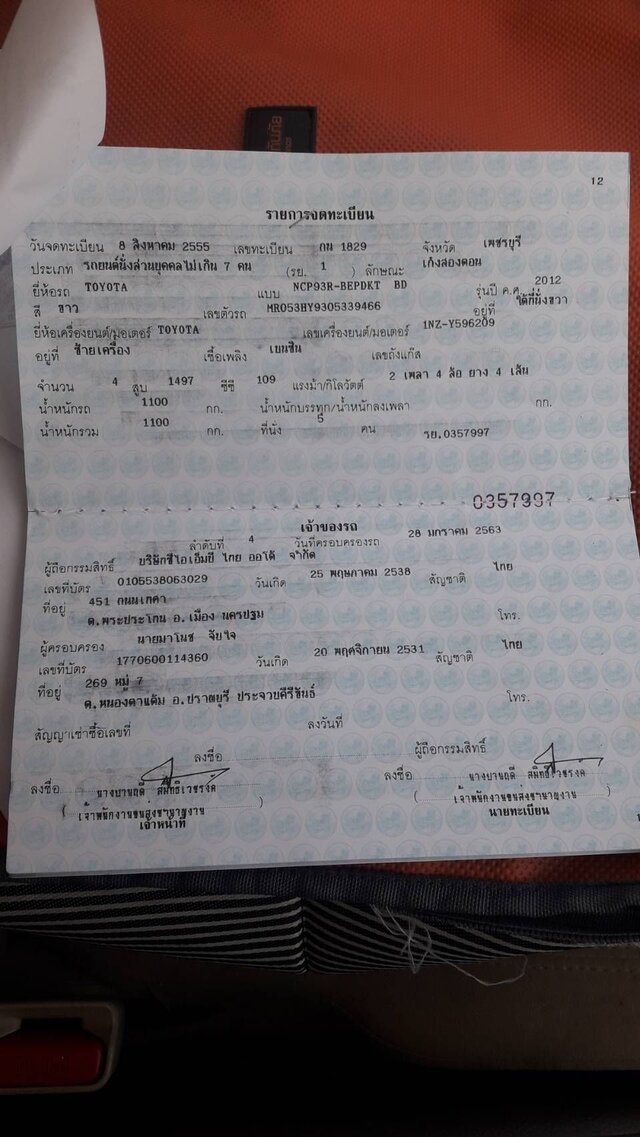 ทันภัย
12
รายการจดทะเบียน
วันจดทะเบียน 8 สิงหาคม 2555 เลขทะเบียน กน 1829 จังหวัด เพชรบุรี
ประเภท รถยนต์นั่งส่วนบุคคลไม่เกิน 7 คน (รย. 1 ) ลักษณะ เก๋งสองตอน
ยี่ห้อรถ TOYOTA แบบ NCP93R-BEPDKT BD รุ่นปี ค.ศ. 2012
สี ขาว เลขตัวรถ MR053HY9305339466 อยู่ที่ ใต้ที่นั่งขวา
ยี่ห้อเครื่องยนต์/มอเตอร์ TOYOTA เลขเครื่องยนต์/มอเตอร์ 1NZ-Y596209
อยู่ที่ ซ้ายเครื่อง เชื้อเพลิง เบนซิน เลขถังแก๊ส
จำนวน 4 สูบ 1497 ซีซี 109 แรงม้า/กิโลวัตต์ 2 เพลา 4 ล้อ ยาง 4 เส้น
น้ำหนักรถ 1100 กก. น้ำหนักบรรทุก/น้ำหนักลงเพลา กก.
น้ำหนักรวม 1100 กก. ที่นั่ง 5 คน รย.0357997
0357997
เจ้าของรถ
ลำดับที่ 4 วันที่ครอบครองรถ 28 มกราคม 2563
ผู้ถือกรรมสิทธิ์ บริษัทซีไอเอ็มบี ไทย ออโต้ จำกัด
เลขที่บัตร 0105538063029 วันเกิด 25 พฤษภาคม 2538 สัญชาติ ไทย
ที่อยู่ 451 ถนนเทศา
ต.พระประโทน อ.เมือง นครปฐม โทร.
ผู้ครอบครอง นายมาโนช จัยใจ
เลขที่บัตร 1770600114360 วันเกิด 20 พฤศจิกายน 2531 สัญชาติ ไทย
ที่อยู่ 269 หมู่ 7
ต.หนองตาแต้ม อ.ปราณบุรี ประจวบคีรีขันธ์ โทร.
สัญญาเช่าซื้อเลขที่ ลงวันที่
ลงชื่อ ผู้ถือกรรมสิทธิ์
ลงชื่อ ลงชื่อ
( เจ้าพนักงานขนส่งชำนาญงาน ) ( เจ้าพนักงานขนส่งชำนาญงาน )
เจ้าหน้าที่ นายทะเบียน